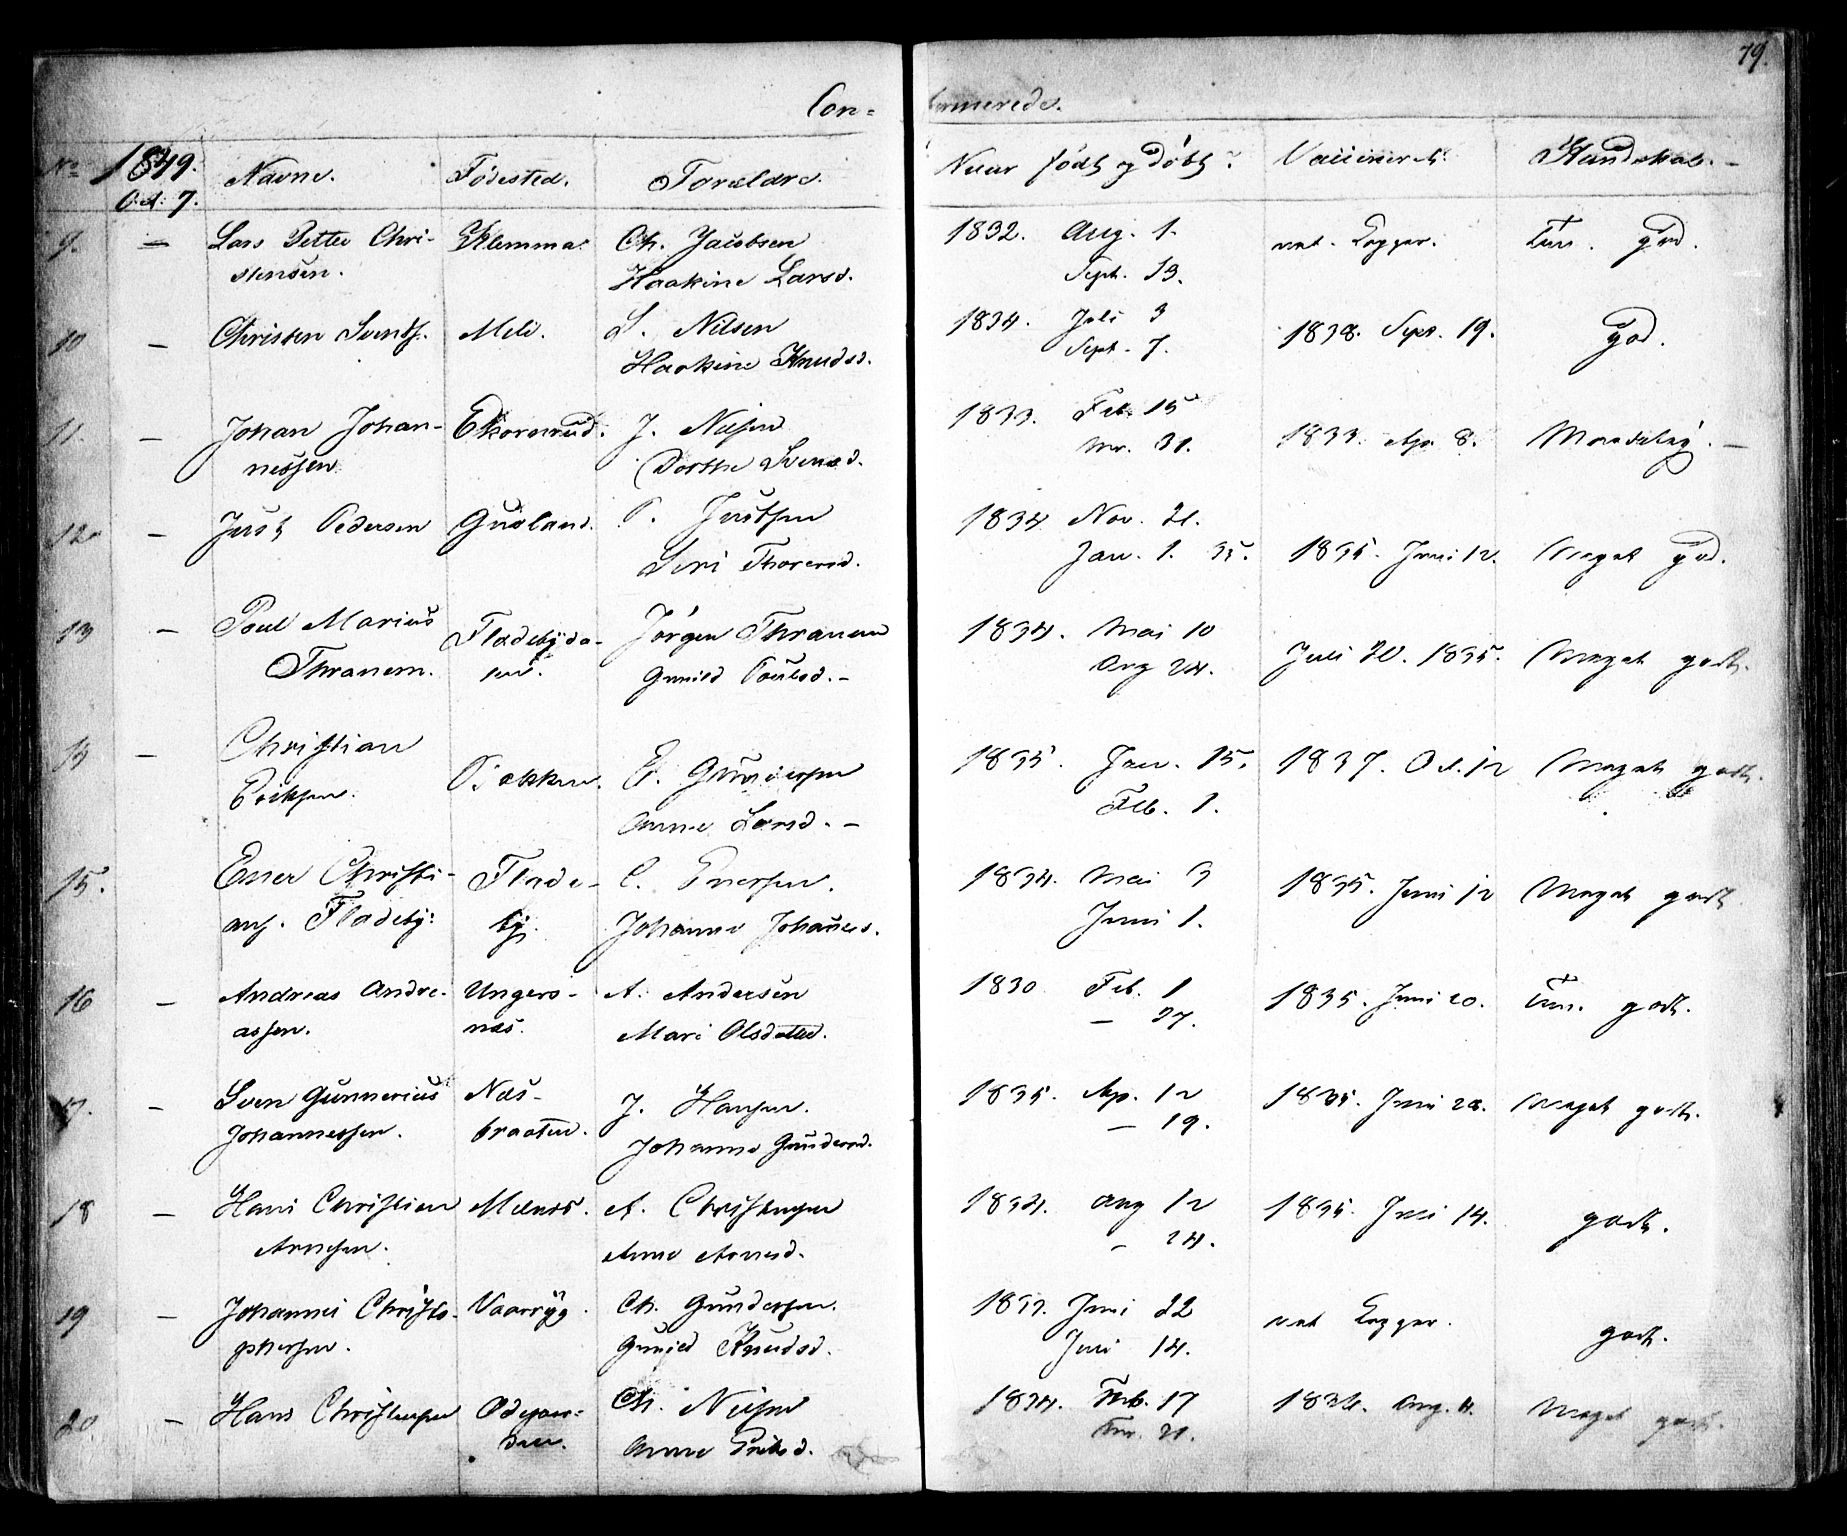 79.
Con= firmerede.
No 1849. Oct. 7. Navne. Fødested. Forældre. Naar født og døbt. Vaccineret. Kundskab. -
9. - Lars Petter Chri- Klemma: Ch. Jacobsen 1832. Aug. 1. nat. Kopper. god.
stensen. Haakine Larsd. Sept. 13.
10 - Christen Svends. Meli. S. Nilsen 1834. Juli 3 1838. Sept. 19. god.
Haakine Knudsd. Sept. 7.
11. - Johan Johan- Ekornrud. J. Nilsen 1833. Feb. 15 1833. Ap. 8. Maadelig. -
nessen Dorthe Svensd. Mr. 31.
12. - Just Pedersen Gusland. P. Justsen 1834 Nov. 21. 1835. Juni 12. Meget god.
Siri Thorersd. Jan. 1. 35.
13 - Poul Marius Fladebyda- Jørgen Thranem 1834. Mai 10 Juli 20. 1835. Meget godt.
Thranem. len. Gunild Poulsd. - Aug 24.
14 - Christian Bakken. E. Gundersen 1835. Jan. 15. 1837. Oct. 12 Meget godt.
Eriksen. Anne Larsd. - Feb. 1.
15. Ener Christi- Flade- C. Enersen. 1834. Mai 3 1835. Juni 12 Meget godt
ans. Fladeby. by. Johanne Johanesd. Juni 1.
16 - Andreas Andre- Ungers- A. Andersen 1830 Feb. 1 1835. Juni 20. godt.
assen. næs. Mari Olsdatter. - 27.
17. - Sven Gunnerius Næs- J. Hansen. 1835. Ap. 12 1835. Juni 28. Meget godt.
Johannessen. braaten. Johanne Gundersd. - 19.
18 - Hans Christian Melnes. A. Christensen 1834. Aug 12 1835. Juni 14. godt.
Arnesen. Anne Arnesd. - 24.
19 - Johannes Christo- Vaarryg. Ch. Gundersen. 1833. Juni 22 nat Kopper. godt.
phersen. Gunild Knudsd. Juli 14.
20. - Hans Christensen Ch. Nilsen 1834. Feb. 17 1836. Aug. 4. Meget godt.
Anne Eriksd. Mr. 21.